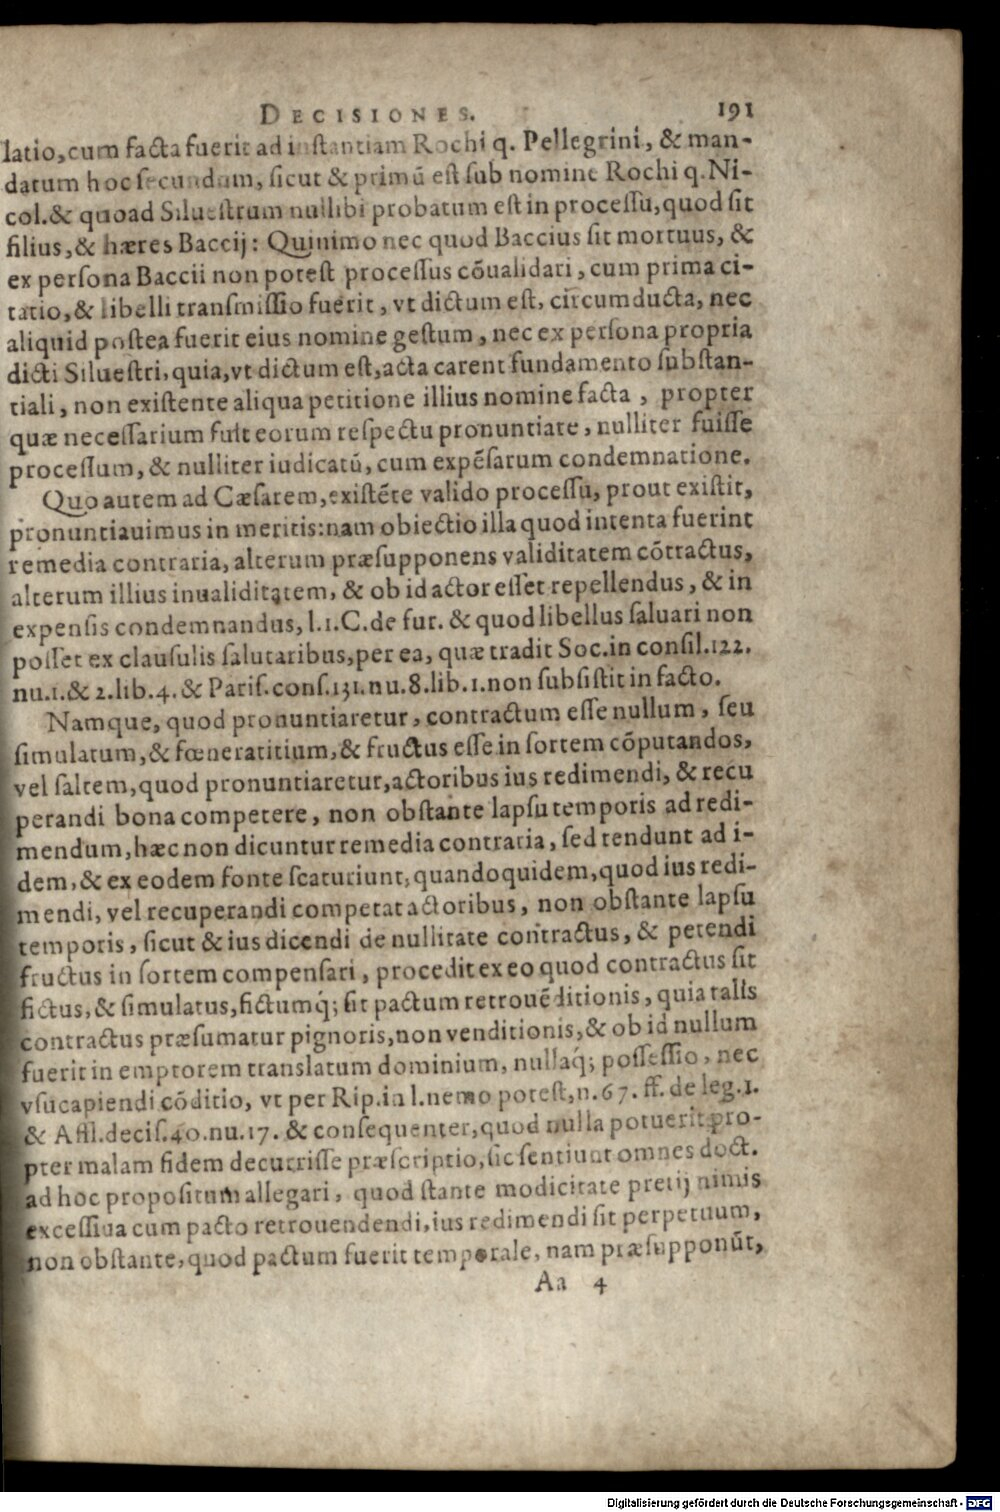 DECISIONES. 191
latio, cum facta fuerit ad instantiam Rochi q. Pellegrini, & man-
datum hoc secundum, sicut & primū est sub nomine Rochi q. Ni-
col. & quoad Siluestrum nullibi probatum est in processu, quod sit
filius, & hæres Baccij: Quinimo nec quod Baccius sit mortuus, &
ex persona Baccii non potest processus cōualidari, cum prima ci-
tatio, & libelli transmissio fuerit, vt dictum est, circumducta, nec
aliquid postea fuerit eius nomine gestum, nec ex persona propria
dicti Siluestri, quia, vt dictum est, acta carent fundamento substan-
tiali, non existente aliqua petitione illius nomine facta, propter
quæ necessarium fuit eorum respectu pronuntiare, nulliter fuisse
processum, & nulliter iudicatū, cum expēsarum condemnatione.
Quo autem ad Cæsarem, existēte valido processu, prout existit,
pronuntiauimus in meritis: nam obiectio illa quod intenta fuerint
remedia contraria, alterum præsupponens validitatem cōtractus,
alterum illius inualiditatem, & ob id actor esset repellendus, & in
expensis condemnandus, l.1.C.de fur. & quod libellus saluari non
posset ex clausulis salutaribus, per ea, quæ tradit Soc. in consil.122.
nu.1.& 2.lib.4.& Paris.cons.131.nu.8.lib.1.non subsistit in facto.
Namque, quod pronuntiaretur, contractum esse nullum, seu
simulatum, & fœneratitium, & fructus esse in sortem cōputandos,
vel saltem, quod pronuntiaretur, actoribus ius redimendi, & recu
perandi bona competere, non obstante lapsu temporis ad redi-
mendum, hæc non dicuntur remedia contraria, sed tendunt ad i-
dem, & ex eodem fonte scaturiunt, quandoquidem, quod ius redi-
mendi, vel recuperandi competat actoribus, non obstante lapsu
temporis, sicut & ius dicendi de nullitate contractus, & petendi
fructus in sortem compensari, procedit ex eo quod contractus sit
fictus, & simulatus, fictumq́; sit pactum retrouēditionis, quia talis
contractus præsumatur pignoris, non venditionis, & ob id nullum
fuerit in emptorem translatum dominium, nullaq́; possessio, nec
vsucapiendi cōditio, vt per Rip.in l.nemo potest, n.67. ff. de leg.1.
& Affl.decis.40.nu.17. & consequenter, quod nulla potuerit pro-
pter malam fidem decurrisse præscriptio, sic sentiunt omnes doct.
ad hoc propositum allegari, quod stante modicitate pretij nimis
excessiua cum pacto retrouendendi, ius redimendi sit perpetuum,
non obstante, quod pactum fuerit temporale, nam præsupponūt,
Aa 4
Digitalisierung gefördert durch die Deutsche Forschungsgemeinschaft - DFG